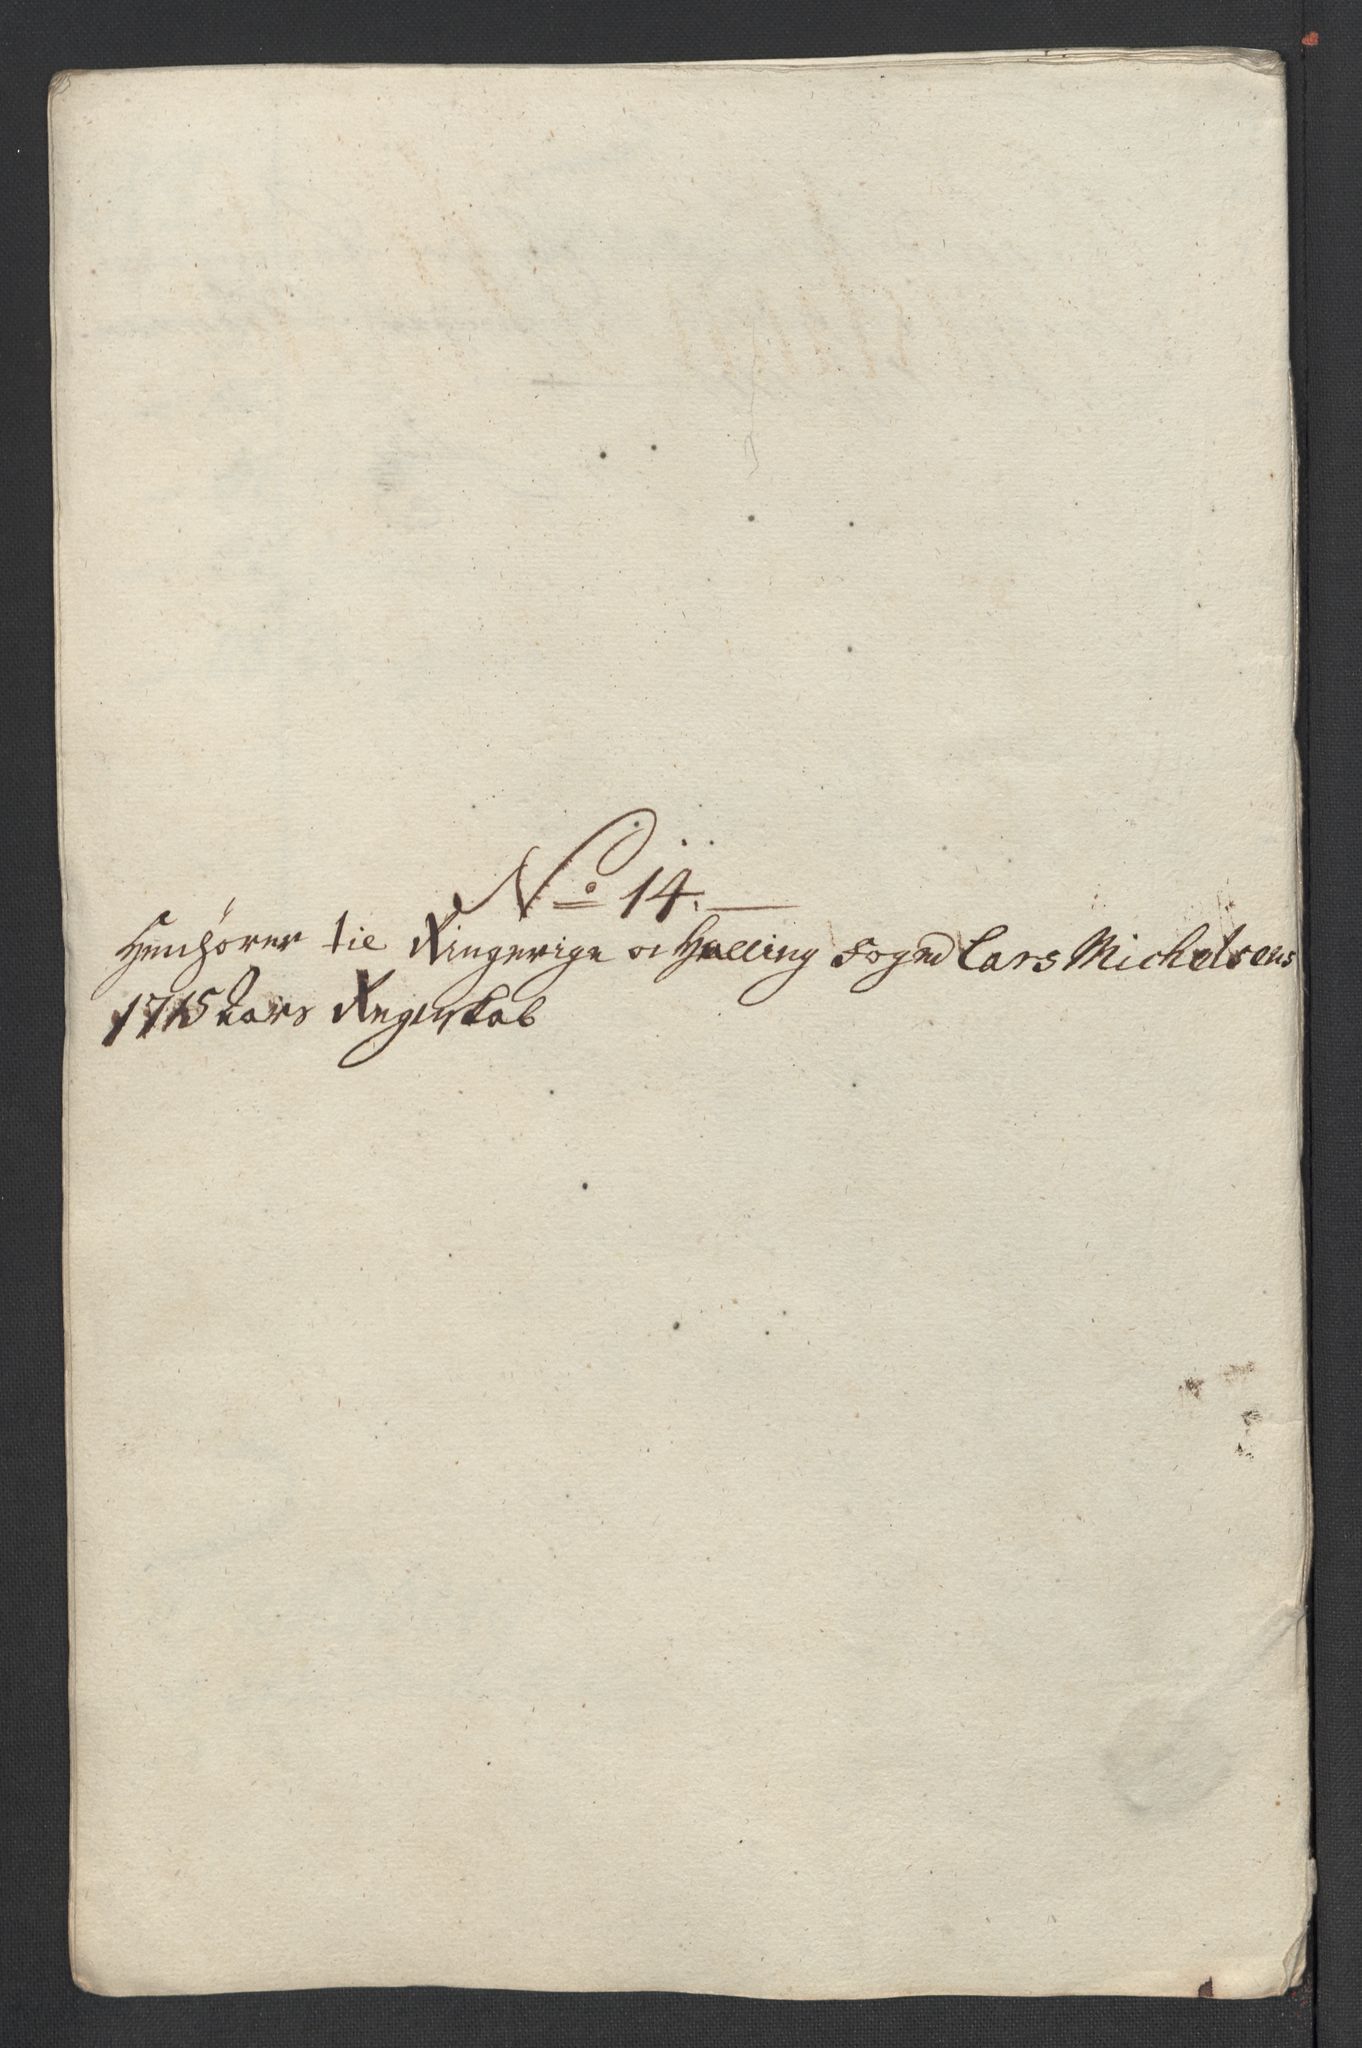 No 14.
Henhörer til Ringerige oc Halling Sogned Lars Michelsens
1715 Aars Regenskab